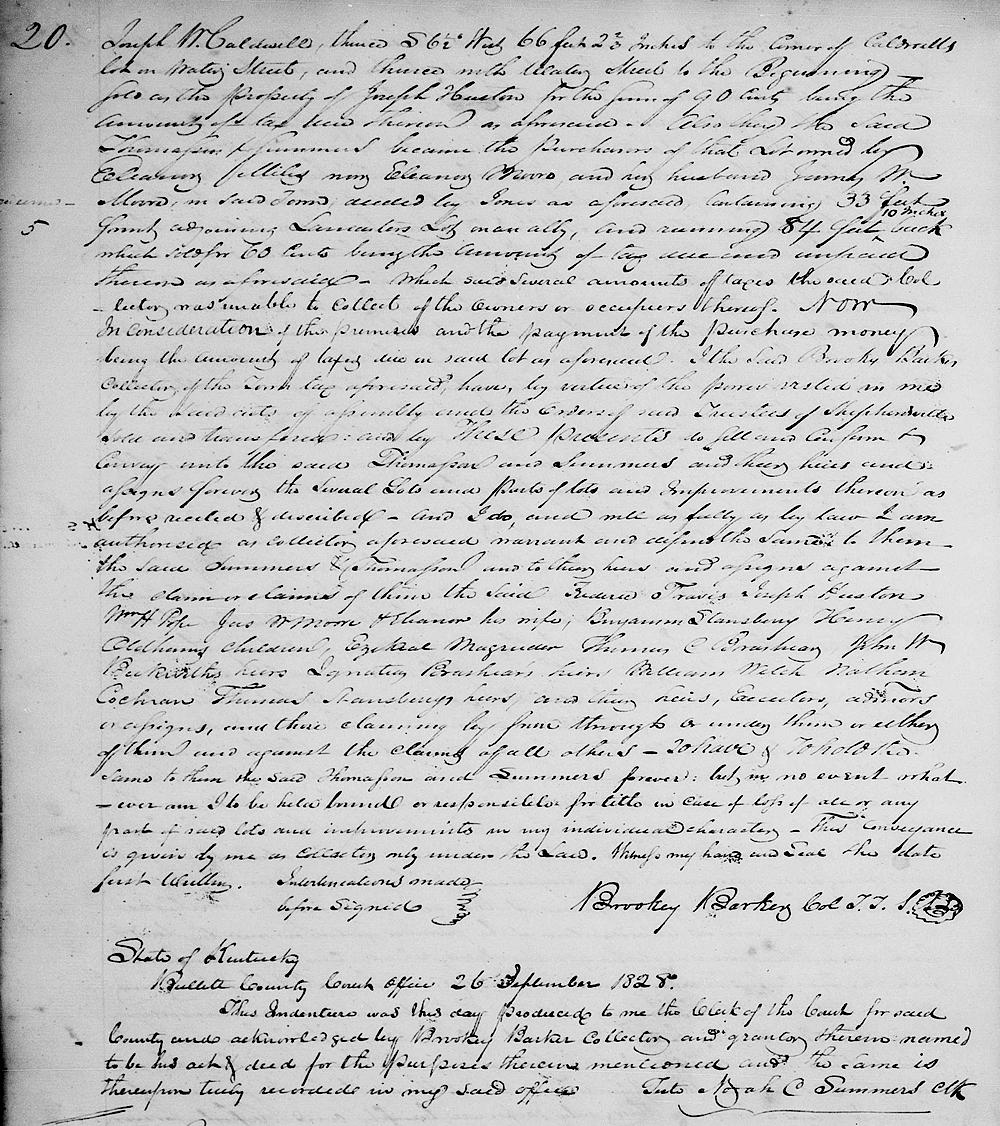 20.
Joseph W. Caldwell, thence S 6½° West 66 feet 2¾ Inches to the Corner of Caldwells
lot on Water Street, and thence with Water Street to the Beginning
sold as the property of Joseph Huston for the sum of 90 Cents being the
amount of tax due thereon as aforesaid. Also they the said
Thomasson & Summers became the purchasers of that Lot owned by
Eleanor now Eleanor Moore, and her husband James M
Moore, in said Town, deeded by Jones as aforesaid, Containing 33 feet
10 Inches
5
front adjoining Lancasters Lot on an ally, and running 84 feet back
which sold for 60 Cents being the amount of tax due and unpaid
thereon as aforesaid - which said several amounts of taxes the said Col
-lector was unable to collect of the Owners or occupiers thereof. Now
In consideration of the premises and the payment of the purchase money
being the amount of taxes due on said lot as aforesaid. I the said Brookey Barker
Collector of the Town tax aforesaid, have, by virtue of the power vested in me
by the said acts of assembly and the Orders of said Trustees of Shepherdsville
sold and transfered: and by These presents do sell and Confirm &
Convey unto the said Thomasson and Summers and their heirs and
assigns forever the several Lots and parts of lots and Improvements thereon as
before recited & described - And I do, and will as fully as by law I am
authorised as collector aforesaid warrant and defend the same to them
the said Summers & Thomasson and to their heirs and assigns against
the claim or claims of them the said Travis Joseph Huston
Wm H Pope Jas W Moore & Eleanor his wife, Benjamin Stansbury Henry
Oldhams children, Ezekeal Magruder Thomas C Brashear, John W
Beckwiths heirs Ignatius Brashears heirs William Welch Nathan
Cochran Thomas Stansburys heirs, and their heirs, Executors, admors
or assigns, and those claiming by from through or under them or either
of them and against the claims of all others - To have & To hold the
same to them the said Thomasson and Summers forever: but in no event what
-ever am I to be held bound or responsible for title in case of loss of all or any
part of said lots and improvements in my individual character - This Conveyance
is given by me as Collector only under the Law. Witness my hand and Seal the date
first Written. Interlineations made
before Signed
Brookey Barker Col T. T. S.
State of Kentucky
Bullitt County Court office 26 September 1828.
This Indenture was this day produced to me the Clerk of the Court for said
County and acknowledged by Brookey Barker Collector and grantor therein named
to be his act & deed for the purposes therein mentioned and the same is
thereupon truly recorded in my said office Teste Noah C Summers Clk